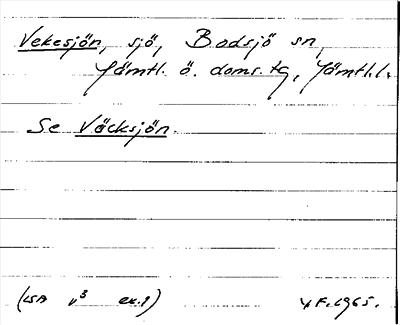 Vekesjön, sjö, Bodsjö sn,
Jämtl. ö. doms. tg, Jämtl.l.
Se Väcksjön.
(LSA v³ ex.1) YF. 1965.